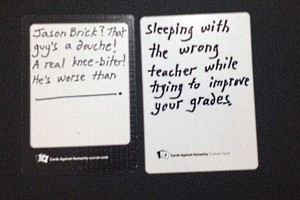 Jason Brick? That
guy's a douche!
A real knee-biter!
He's worse than
__________.
Cards Against Humanity
Sleeping with
the wrong
teacher while
trying to improve
your grades
Cards Against Humanity